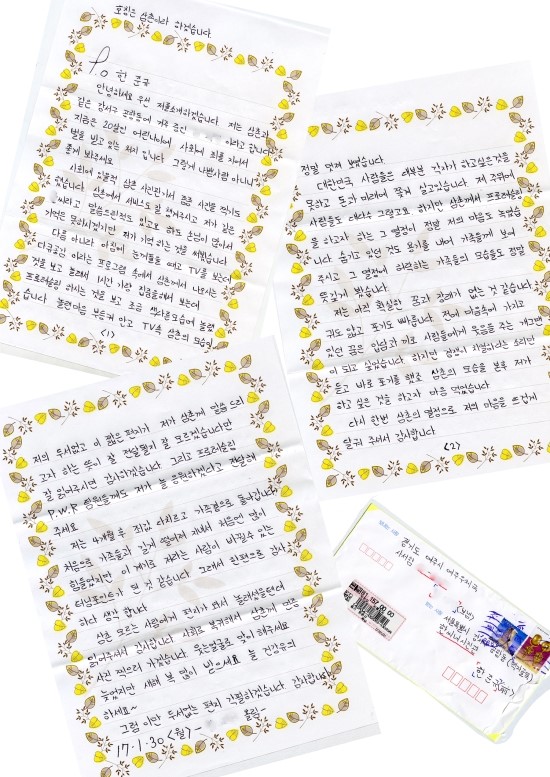 호칭은 삼촌이라 하겠습니다.
To 한 준구
안녕하세요 우선 저를소개하겠습니다. 저는 삼촌과
같은 강서구 에 거주 중인 이라고 합니다
지금은 20살인 어린나이에 사회에 죄를 지어서
벌을 받고 있는 처지 입니다. 그렇게 나쁜사람 아니니
좋게 봐주세요
사회에 있을적 삼촌 사진관에서 증명 사진을 찍기도
했습니다 삼촌께서 서비스도 잘 챙겨주시고 저가 같은
이라고 말씀드린적도 있고요 하도 손님이 많아서
기억은 못하시겠지만 저가 기억 하는 것을 써봤습니다
다름 아니라 아침에 눈꺼풀을 떼고 TV를 보는데
다큐공감 이라는 프로그램 속에서 삼촌께서 나오시는
것을 보고 놀래서 시간 가량 집중을해서 보는데
프로레슬링 하시는 것을 보고 조금 색다른모습에 놀랬
습니다 놀란마음 부둥켜 안고 TV속 삼촌의 모습이
<1>
정말 멋져 보였습니다.
대한민국 사람들은 대부분 각자가 하고싶은것을
못하고 돈과 미래에 쫓겨 살고있습니다. 저 주위에
사람들도 대다수 그렇고요 하지만 삼촌께서 프로레슬링
을 하고자 하는 그 열정이 정말 저의 마음도 녹였습
니다 숨기고 있던 것도 용기를 내어 가족들께 보여
주시고 그 열정에 허락하는 가족들의 모습들도 정말
뜻깊게 봤습니다.
저는 아직 확실한 꿈과 장래가 없는 것 같습니다
귀도 얇고 포기도 빠릅니다. 전에 마음속에 가지고
있던 꿈은 입담과 끼로 사람들에게 웃음을 주는 개그맨
이 되고 싶었습니다. 하지만 성격이 소리만
듣고 바로 포기를 했죠 삼촌의 모습을 보고 저가
하고 싶은 것을 하고자 마음 먹었습니다
다시 한번 삼촌의 열정으로 저의 마음을 뜨겁게
달궈 주셔서 감사합니다
<2>
저의 두서없고 이 짧은 편지가 저가 삼촌께 말씀 드리
고자 하는 뜻이 잘 전달될지 잘 모르겠습니다만
잘 읽어주시면 감사하겠습니다. 그리고 프로레슬링
P.W.F 팀원들께도 저가 늘 응원하겠다고 전달해
주세요
저는 4개월 후 직업 마치고 가족품으로 돌아갑니다
처음으로 가족들과 길게 떨어져 지내서 처음엔 많이
힘들었지만 이 계기로 저라는 사람이 바뀔수 있는
터닝포인트가 된 것 같습니다. 그래서 한편으로 감사
하다 생각 합니다
생판 모르는 사람에게 편지가 와서 놀래셨을텐데
읽어주셔서 감사합니다 사회로 복귀해서 삼촌께 인증
사진 찍으러 가겠습니다. 웃는얼굴로 맞이 해주세요
늦었지만 새해 복 많이 받으세요 늘 건강유의
하세요~
그럼 이만 두서없는 편지 각필하겠습니다. 감사합니다
17.1.30<월> 올림-
경기도 여주시 여주우체국
사서함
서울특별시